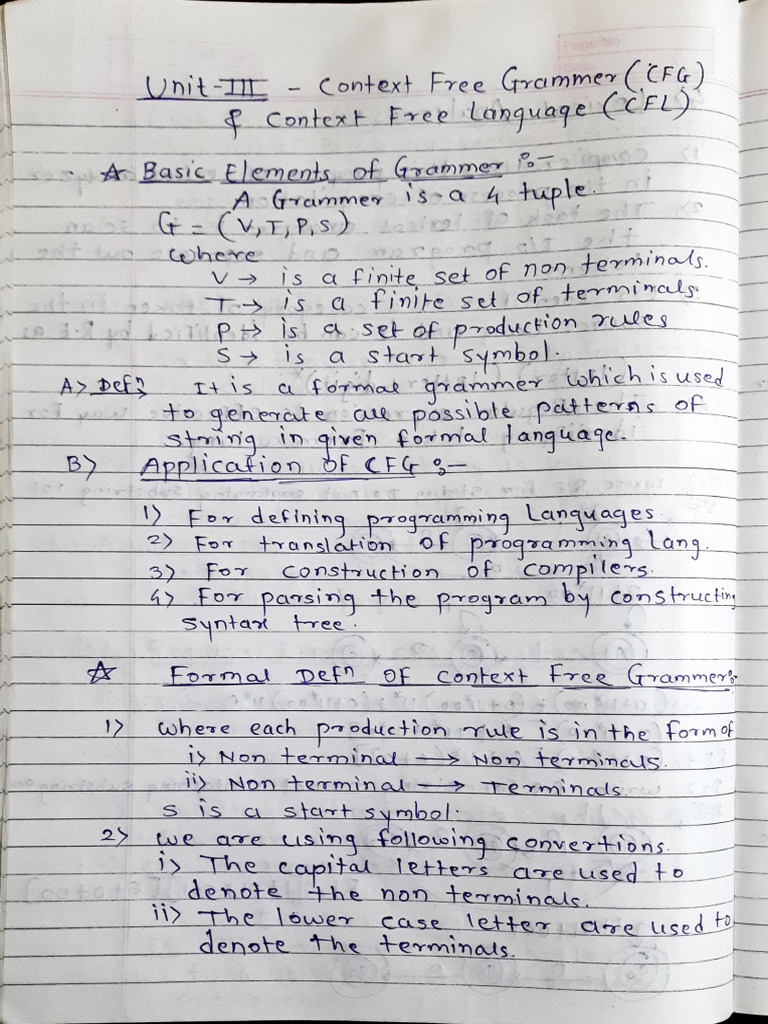 Unit-III - Context Free Grammer (CFG)
& Context Free Language (CFL)
☆ Basic Elements of Grammer :-
A Grammer is a 4 tuple.
G = (V, T, P, S)
where
V → is a finite set of non terminals.
T → is a finite set of terminals.
P → is a set of production rules
S → is a start symbol.
A> Defⁿ It is a formal grammer which is used
to generate all possible patterns of
string in given formal language.
B> Application of CFG :-
1> For defining programming Languages.
2> For translation of programming Lang.
3> For construction of compilers.
4> For parsing the program by constructing
syntax tree.
☆ Formal Defⁿ of context Free Grammer:-
1> where each production rule is in the form of
i> Non terminal → Non terminals.
ii> Non terminal → Terminals.
S is a start symbol.
2> we are using following convertions.
i> The capital letters are used to
denote the non terminals.
ii> The lower case letter are used to
denote the terminals.